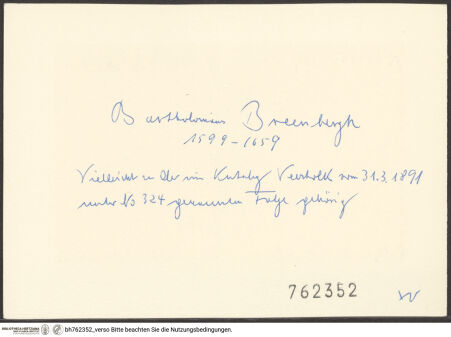 Bartholomäus Breenbergh
1599-1659
Vielleicht zu der im Katalog vom 31.3.1891
unter No 324 genannten Folge gehörig
762352
BIBLIOTHECA HERTZIANA
bh762352_verso Bitte beachten Sie die Nutzungsbedingungen.